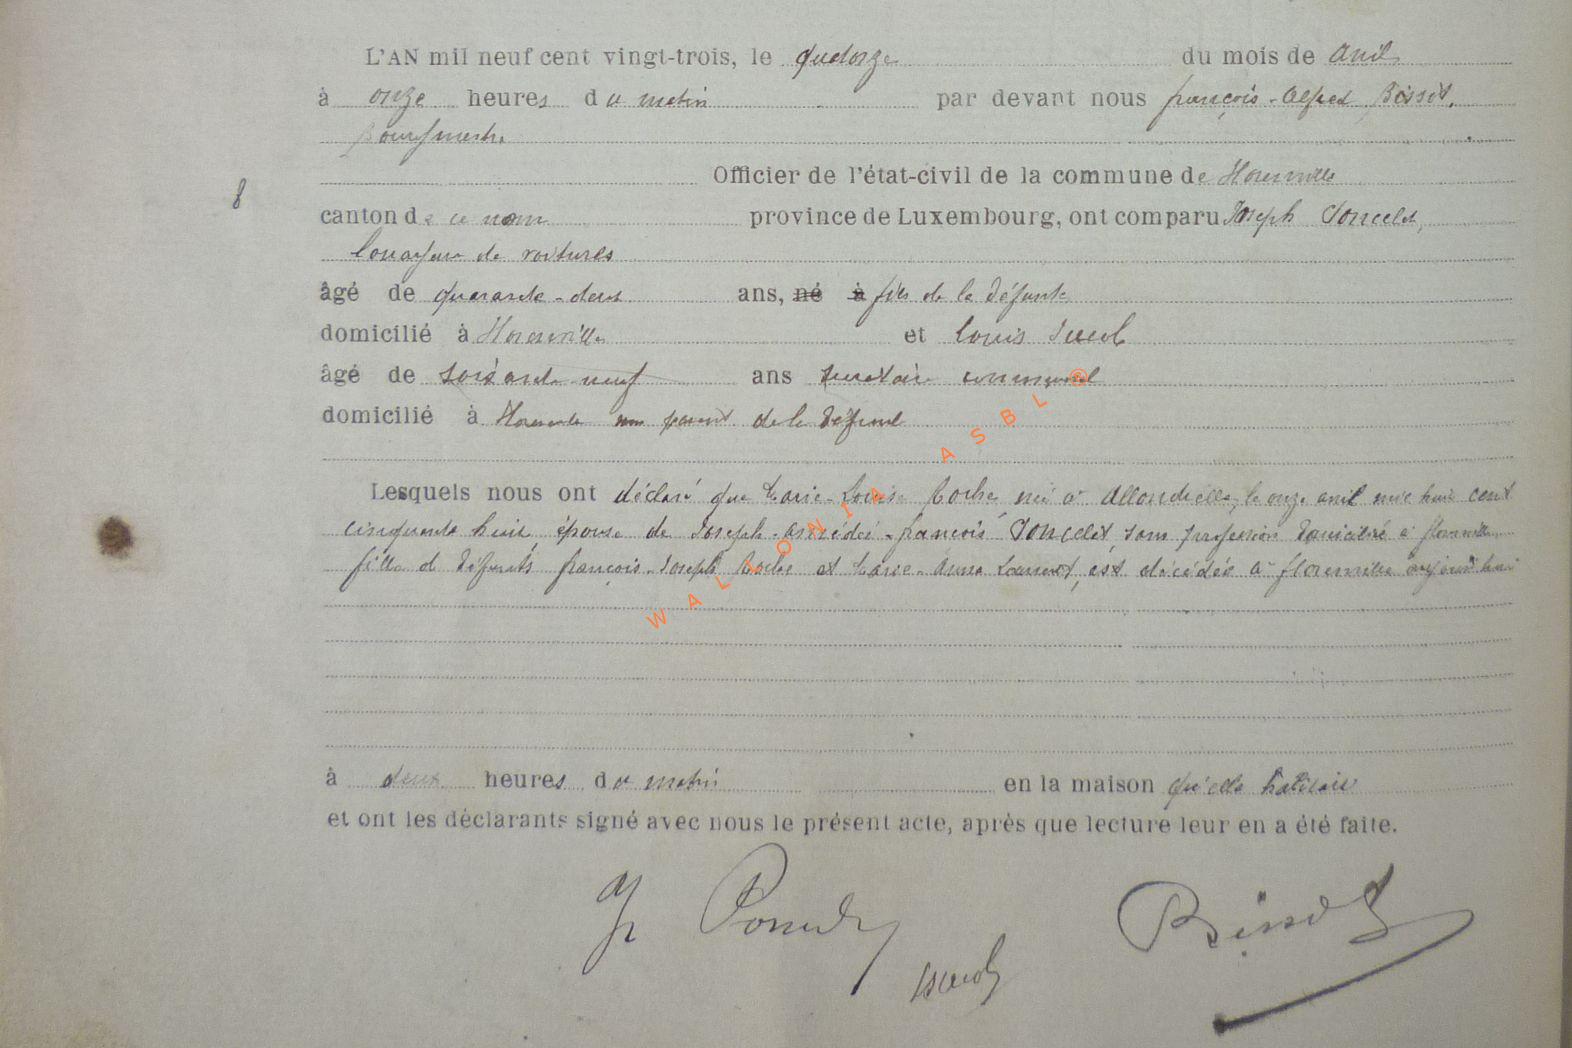 L'AN mil neuf cent vingt-trois, le quatorze du mois de avril
à onze heures du matin par devant nous françois-Alfred Bissot,
bourgmestre
Officier de l'état-civil de la commune de Florenville
8
canton de ce nom province de Luxembourg, ont comparu Joseph Poncelet,
louageur de voitures
âgé de quarante-deux ans, né à fils de la défunte
domicilié à Florenville et Louis
âgé de soixante neuf ans secrétaire communal
domicilié à Florenville non parent de la défunte
Lesquels nous ont déclaré que Marie-Louise née à Allondrelle, le onze avril mil huit cent
cinquante huit, épouse de Joseph-Amédée-françois Poncelet, sans profession domiciliée à florenville,
fille de défunts françois-Joseph et Marie-Anne est décédée à florenville aujourd'hui
à deux heures du matin en la maison qu'elle habitait
et ont les déclarants signé avec nous le présent acte, après que lecture leur en a été faite.
J Poncelet
Bissot
WALLONIA ASBL ®